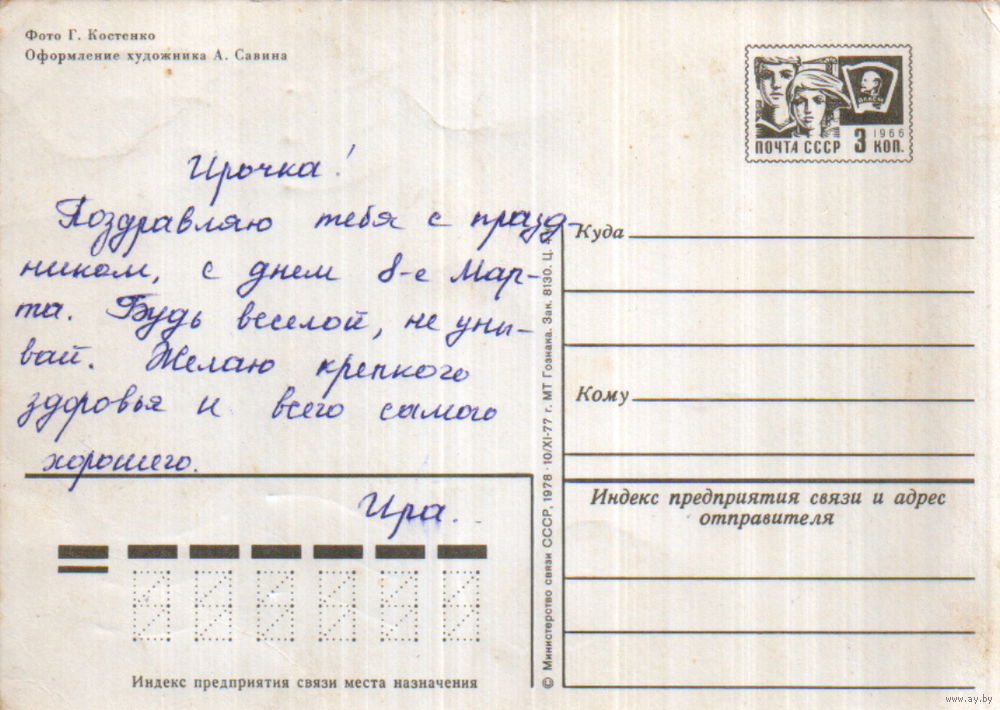 Фото Г. Костенко
Оформление художника А. Савина
ВЛКСМ
1966
ПОЧТА СССР 3 КОП.
Ирочка!
Поздравляю тебя с празд-
ником, с днем 8-е Мар-
та. Будь веселой, не уны-
вай. Желаю крепкого
здоровья и всего самого
хорошего.
Ира.
Индекс предприятия связи места назначения
© Министерство связи СССР, 1978 · 10/XI-77 г. МТ Гознака. Зак. 8130. Ц.
Куда
Кому
Индекс предприятия связи и адрес
отправителя
www.ay.by